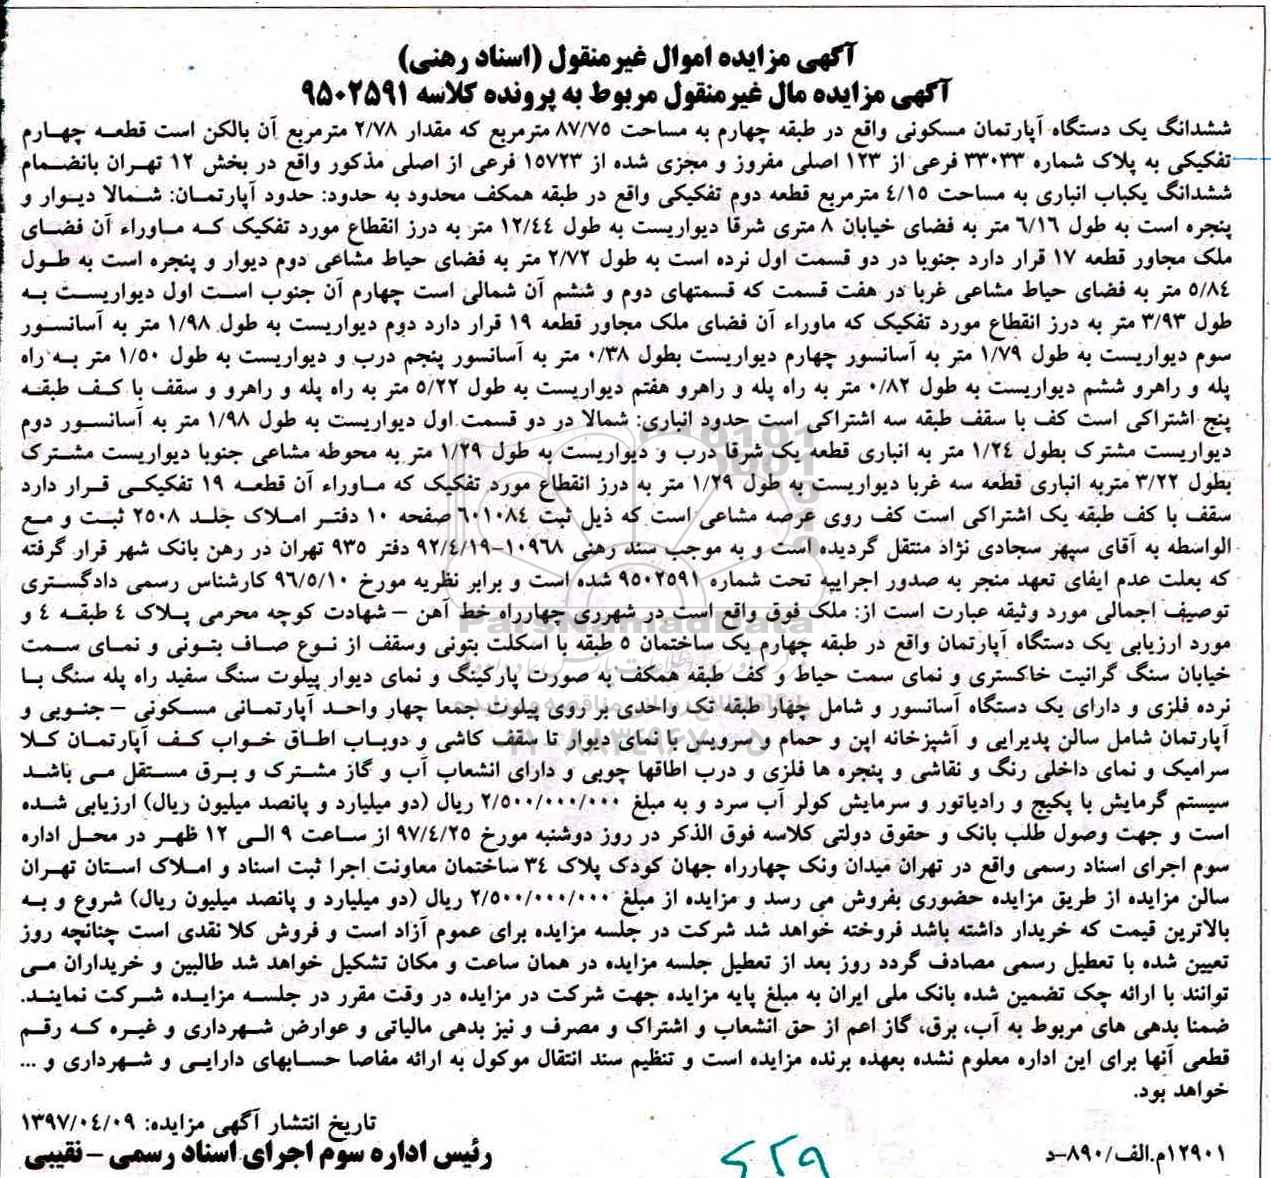 آگهی مزایده اموال غیرمنقول (اسناد رهنی)
آگهی مزایده مال غیرمنقول مربوط به پرونده کلاسه ۹۵۰۲۵۹۱
ششدانگ یک دستگاه آپارتمان مسکونی واقع در طبقه چهارم به مساحت ۸۷/۷۵ مترمربع که مقدار ۲/۷۸ مترمربع آن بالکن است قطعه چهارم
تفکیکی به پلاک شماره ۳۳۰۳۳ فرعی از ۱۲۳ اصلی مفروز و مجزی شده از ۱۵۷۲۳ فرعی از اصلی مذکور واقع در بخش ۱۲ تهران بانضمام
ششدانگ یکباب انباری به مساحت ۴/۱۵ مترمربع قطعه دوم تفکیکی واقع در طبقه همکف محدود به حدود: حدود آپارتمان: شمالا دیوار و
پنجره است به طول ۶/۱۶ متر به فضای خیابان ۸ متری شرقا دیواریست به طول ۱۲/۴۴ متر به درز انقطاع مورد تفکیک که ماوراء آن فضای
ملک مجاور قطعه ۱۷ قرار دارد جنوبا در دو قسمت اول نرده است به طول ۲/۷۲ متر به فضای حیاط مشاعی دوم دیوار و پنجره است به طول
۵/۸۴ متر به فضای حیاط مشاعی غربا در هفت قسمت که قسمتهای دوم و ششم آن شمالی است چهارم آن جنوب است اول دیواریست به
طول ۳/۹۳ متر به درز انقطاع مورد تفکیک که ماوراء آن فضای ملک مجاور قطعه ۱۹ قرار دارد دوم دیواریست به طول ۱/۹۸ متر به آسانسور
سوم دیواریست به طول ۱/۷۹ متر به آسانسور چهارم دیواریست بطول ۰/۳۸ متر به آسانسور پنجم درب و دیواریست به طول ۱/۵۰ متر به راه
پله و راهرو ششم دیواریست به طول ۰/۸۲ متر به راه پله و راهرو هفتم دیواریست به طول ۵/۲۲ متر به راه پله و راهرو و سقف با کف طبقه
پنج اشتراکی است کف با سقف طبقه سه اشتراکی است حدود انباری: شمالا در دو قسمت اول دیواریست به طول ۱/۹۸ متر به آسانسور دوم
دیواریست مشترک بطول ۱/۲۴ متر به انباری قطعه یک شرقا درب و دیواریست به طول ۱/۲۹ متر به محوطه مشاعی جنوبا دیواریست مشترک
بطول ۳/۲۲ متربه انباری قطعه سه غربا دیواریست به طول ۱/۲۹ متر به درز انقطاع مورد تفکیک که ماوراء آن قطعه ۱۹ تفکیکی قرار دارد
سقف با کف طبقه یک اشتراکی است کف روی عرصه مشاعی است که ذیل ثبت ۶۰۱۰۸۴ صفحه ۱۰ دفتر املاک جلد ۲۵۰۸ ثبت و مع
الواسطه به آقای سپهر سجادی نژاد منتقل گردیده است و به موجب سند رهنی ۱۰۹۶۸-۹۲/۴/۱۹ دفتر ۹۳۵ تهران در رهن بانک شهر قرار گرفته
که بعلت عدم ایفای تعهد منجر به صدور اجراییه تحت شماره ۹۵۰۲۵۹۱ شده است و برابر نظریه مورخ ۹۶/۵/۱۰ کارشناس رسمی دادگستری
توصیف اجمالی مورد وثیقه عبارت است از: ملک فوق واقع است در شهرری چهارراه خط آهن – شهادت کوچه محرمی پلاک ۴ طبقه ۴ و
مورد ارزیابی یک دستگاه آپارتمان واقع در طبقه چهارم یک ساختمان ۵ طبقه با اسکلت بتونی وسقف از نوع صاف بتونی و نمای سمت
خیابان سنگ گرانیت خاکستری و نمای سمت حیاط و کف طبقه همکف به صورت پارکینگ و نمای دیوار پیلوت سنگ سفید راه پله سنگ با
نرده فلزی و دارای یک دستگاه آسانسور و شامل چهار طبقه تک واحدی بر روی پیلوت جمعا چهار واحد آپارتمانی مسکونی – جنوبی و
آپارتمان شامل سالن پذیرایی و آشپزخانه اپن و حمام و سرویس با نمای دیوار تا سقف کاشی و دوباب اطاق خواب کف آپارتمان کلا
سرامیک و نمای داخلی رنگ و نقاشی و پنجره ها فلزی و درب اطاقها چوبی و دارای انشعاب آب و گاز مشترک و برق مستقل می باشد
سیستم گرمایش با پکیج و رادیاتور و سرمایش کولر آب سرد و به مبلغ ۲/۵۰۰/۰۰۰/۰۰۰ ریال (دو میلیارد و پانصد میلیون ریال) ارزیابی شده
است و جهت وصول طلب بانک و حقوق دولتی کلاسه فوق الذکر در روز دوشنبه مورخ ۹۷/۴/۲۵ از ساعت ۹ الی ۱۲ ظهر در محل اداره
سوم اجرای اسناد رسمی واقع در تهران میدان ونک چهارراه جهان کودک پلاک ۳۴ ساختمان معاونت اجرا ثبت اسناد و املاک استان تهران
سالن مزایده از طریق مزایده حضوری بفروش می رسد و مزایده از مبلغ ۲/۵۰۰/۰۰۰/۰۰۰ ریال (دو میلیارد و پانصد میلیون ریال) شروع و به
بالاترین قیمت که خریدار داشته باشد فروخته خواهد شد شرکت در جلسه مزایده برای عموم آزاد است و فروش کلا نقدی است چنانچه روز
تعیین شده با تعطیل رسمی مصادف گردد روز بعد از تعطیل جلسه مزایده در همان ساعت و مکان تشکیل خواهد شد طالبین و خریداران می
توانند با ارائه چک تضمین شده بانک ملی ایران به مبلغ پایه مزایده جهت شرکت در مزایده در وقت مقرر در جلسه مزایده شرکت نمایند.
ضمنا بدهی های مربوط به آب، برق، گاز اعم از حق انشعاب و اشتراک و مصرف و نیز بدهی مالیاتی و عوارض شهرداری و غیره که رقم
قطعی آنها برای این اداره معلوم نشده بعهده برنده مزایده است و تنظیم سند انتقال موکول به ارائه مفاصا حسابهای دارایی و شهرداری و ...
خواهد بود.
تاریخ انتشار آگهی مزایده: ۱۳۹۷/۰۴/۰۹
رئیس اداره سوم اجرای اسناد رسمی – نقیبی
۱۲۹۰۱م.الف/۸۹۰-د
ParsNamadData